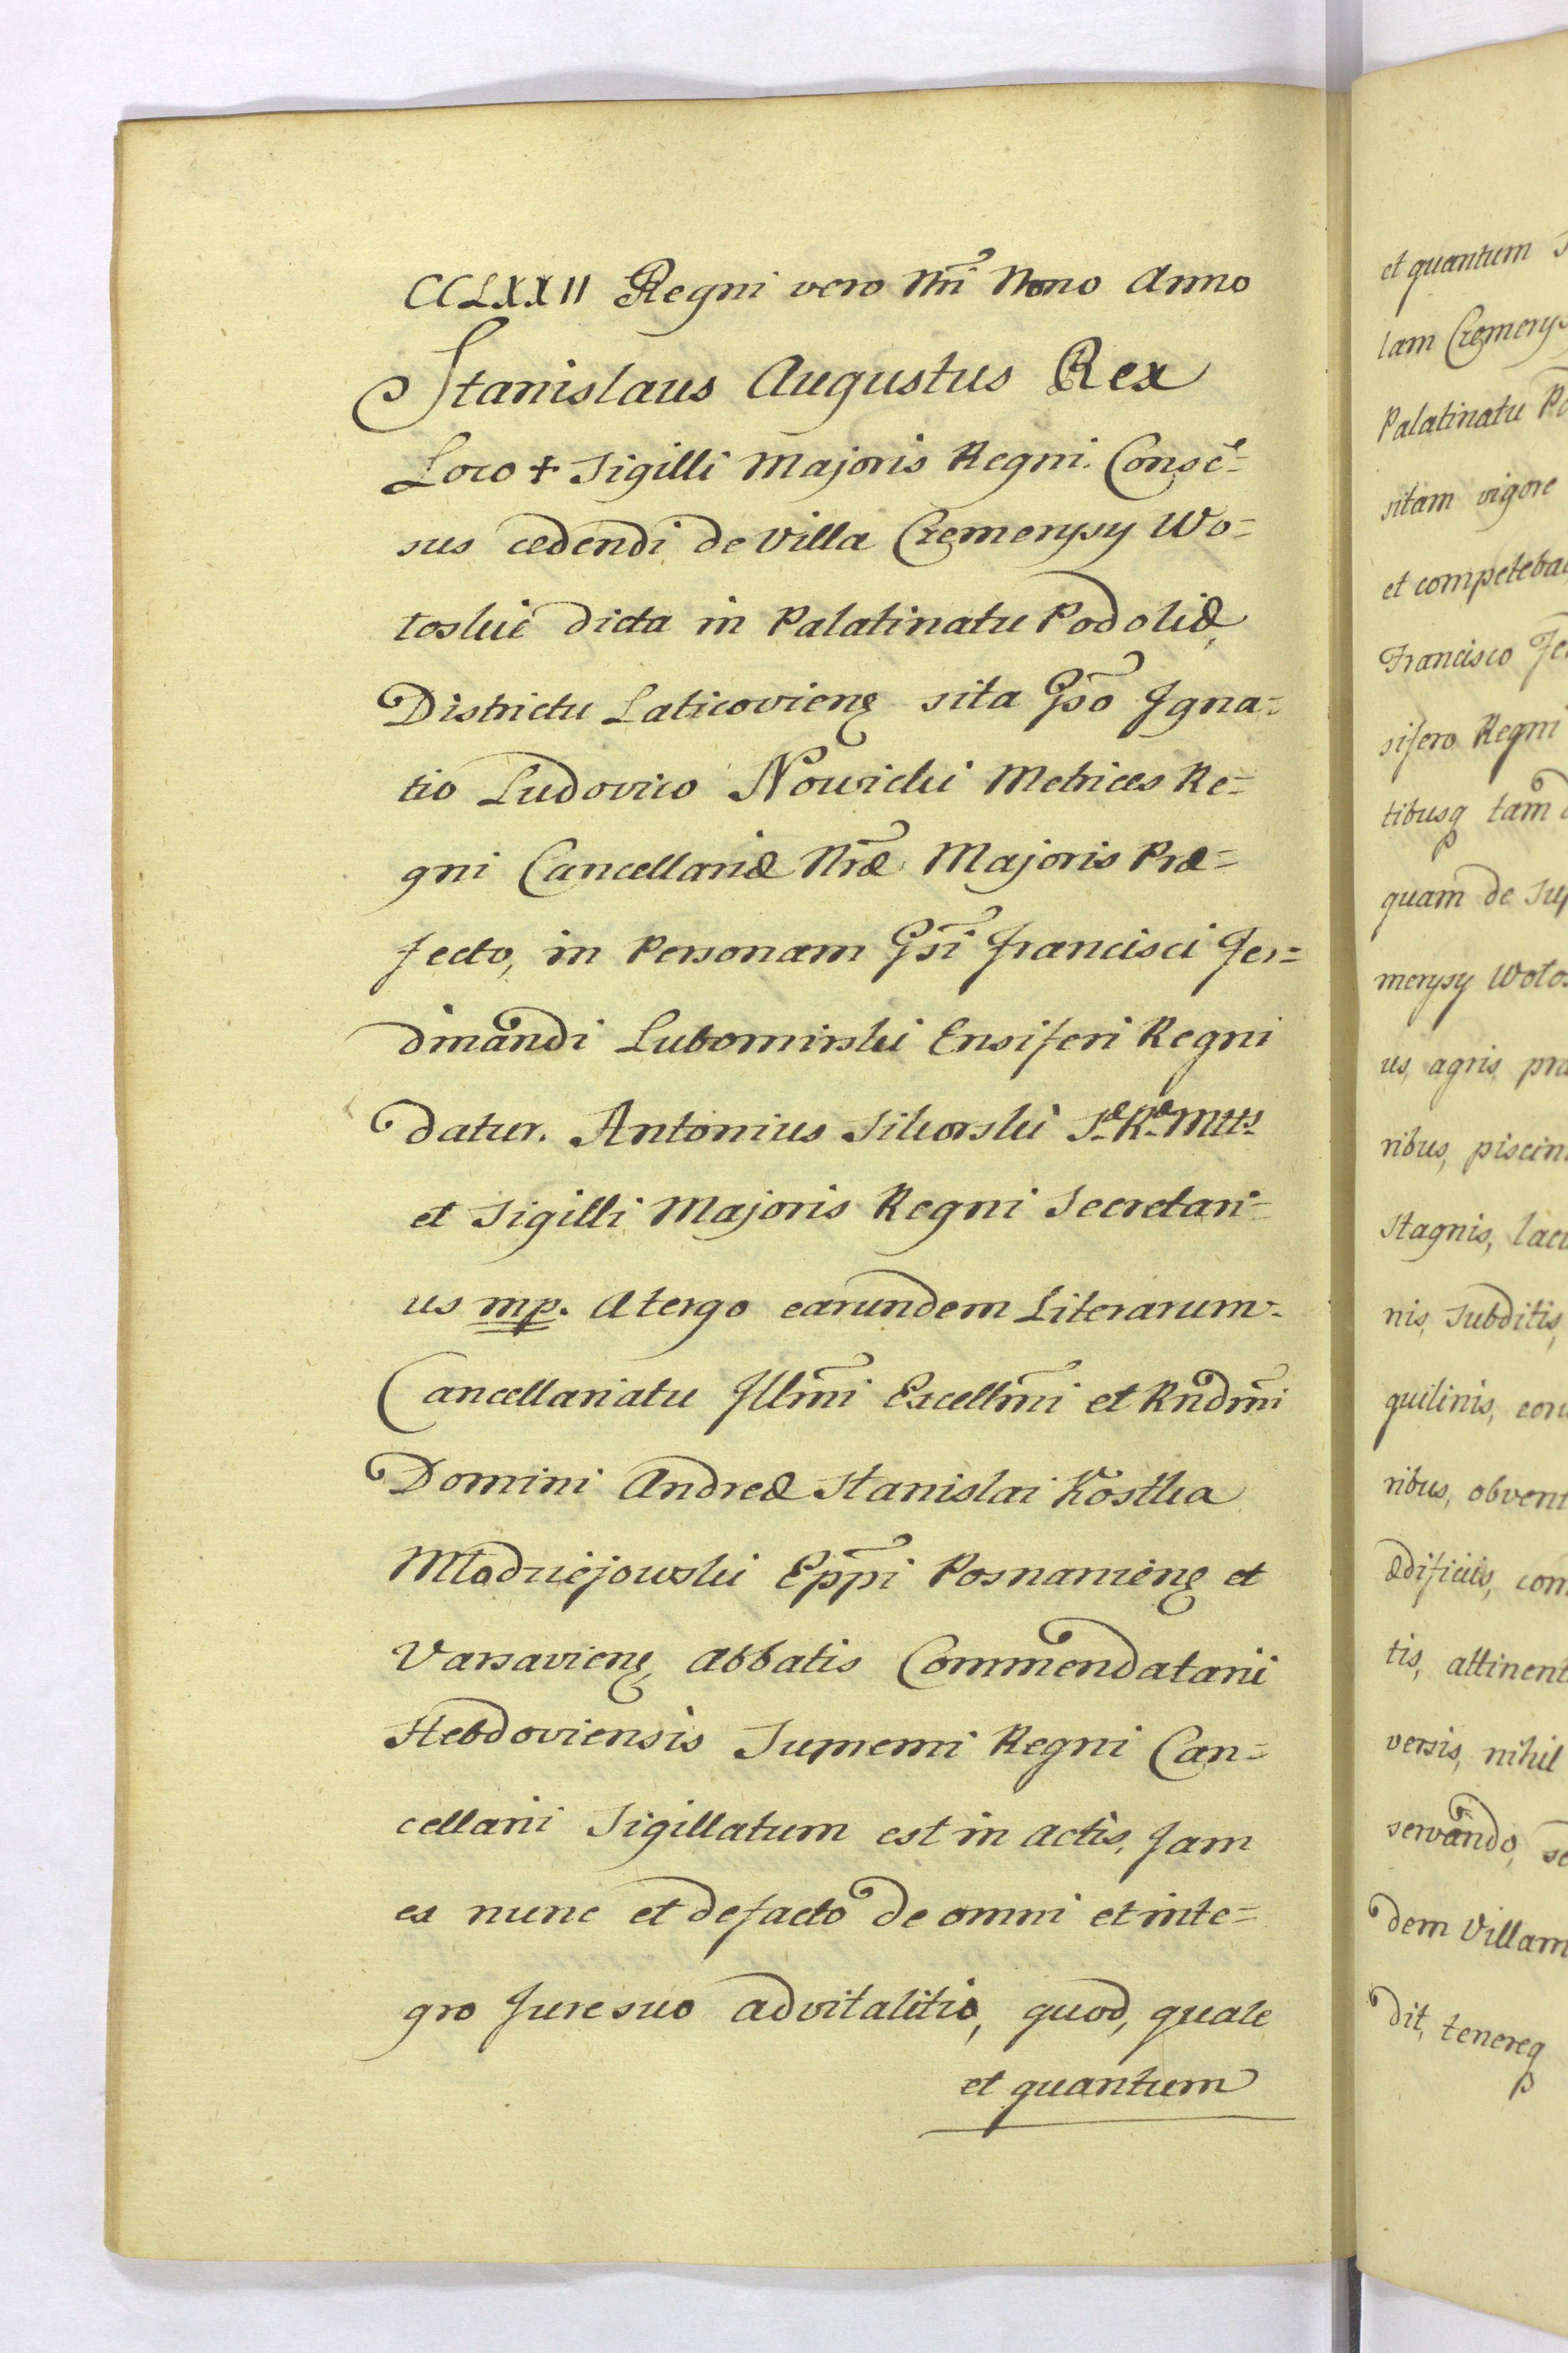 CCLXXII Regni vero Nrĩ Nono Anno
Stanislaus Augustus Rex
Loco + Sigilli Majoris Regni. Consẽ=
sus cedendi de Villa Czemerysy Wo=
łoskie dicta in Palatinatu Podoliæ,
Districtu Laticovieng sita Gsõ Igna=
tio Ludovico Nowicki Metrices Re=
gni Cancellariæ Nræ̃ Majoris Præ=
fecto, in Personam Gsĩ Francisci Fer=
dinandi Lubomirski Ensiferi Regni
datur. Antonius Sikorski Sæ Ræ Mttis
et Sigilli Majoris Regni Secretari=
us mp. A tergo earundem Literarum.
Cancellariatu Illmĩ Excellmĩ et Rndmĩ
Domini Andreæ Stanislai Kostka
Młodziejowski Eppĩ Posnanieng et
Varsavieng, Abbatis Commendatarii
Hebdoviensis Supremi Regni Can=
cellarii Sigillatum est in Actis, Jam
ex nunc et defacto de omni et inte=
gro Jure suo advitalitio, quod, quale
et quantum
et quantum
lam Czemerys
Palatinatu Po
sitam vigore
et competeba
Francisco Fe
sifero Regni
tibusq tam
quam de Su
merysy Woło
us, agris pra
ribus, piscin
Stagnis, lac
nis, Subditis,
quilinis, eor
ribus, obvent
ædificiis, com
tis, attinent
versis, nihil
servando, se
dem Villam
dit, tenereq